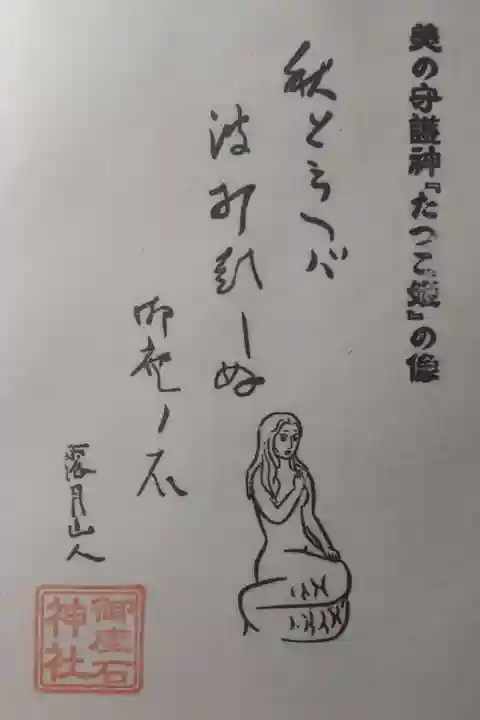 美の守護神『たつこ姫』の像
秋といへバ
波打しぬ
御座ノ石
露月山人
御座石
神社